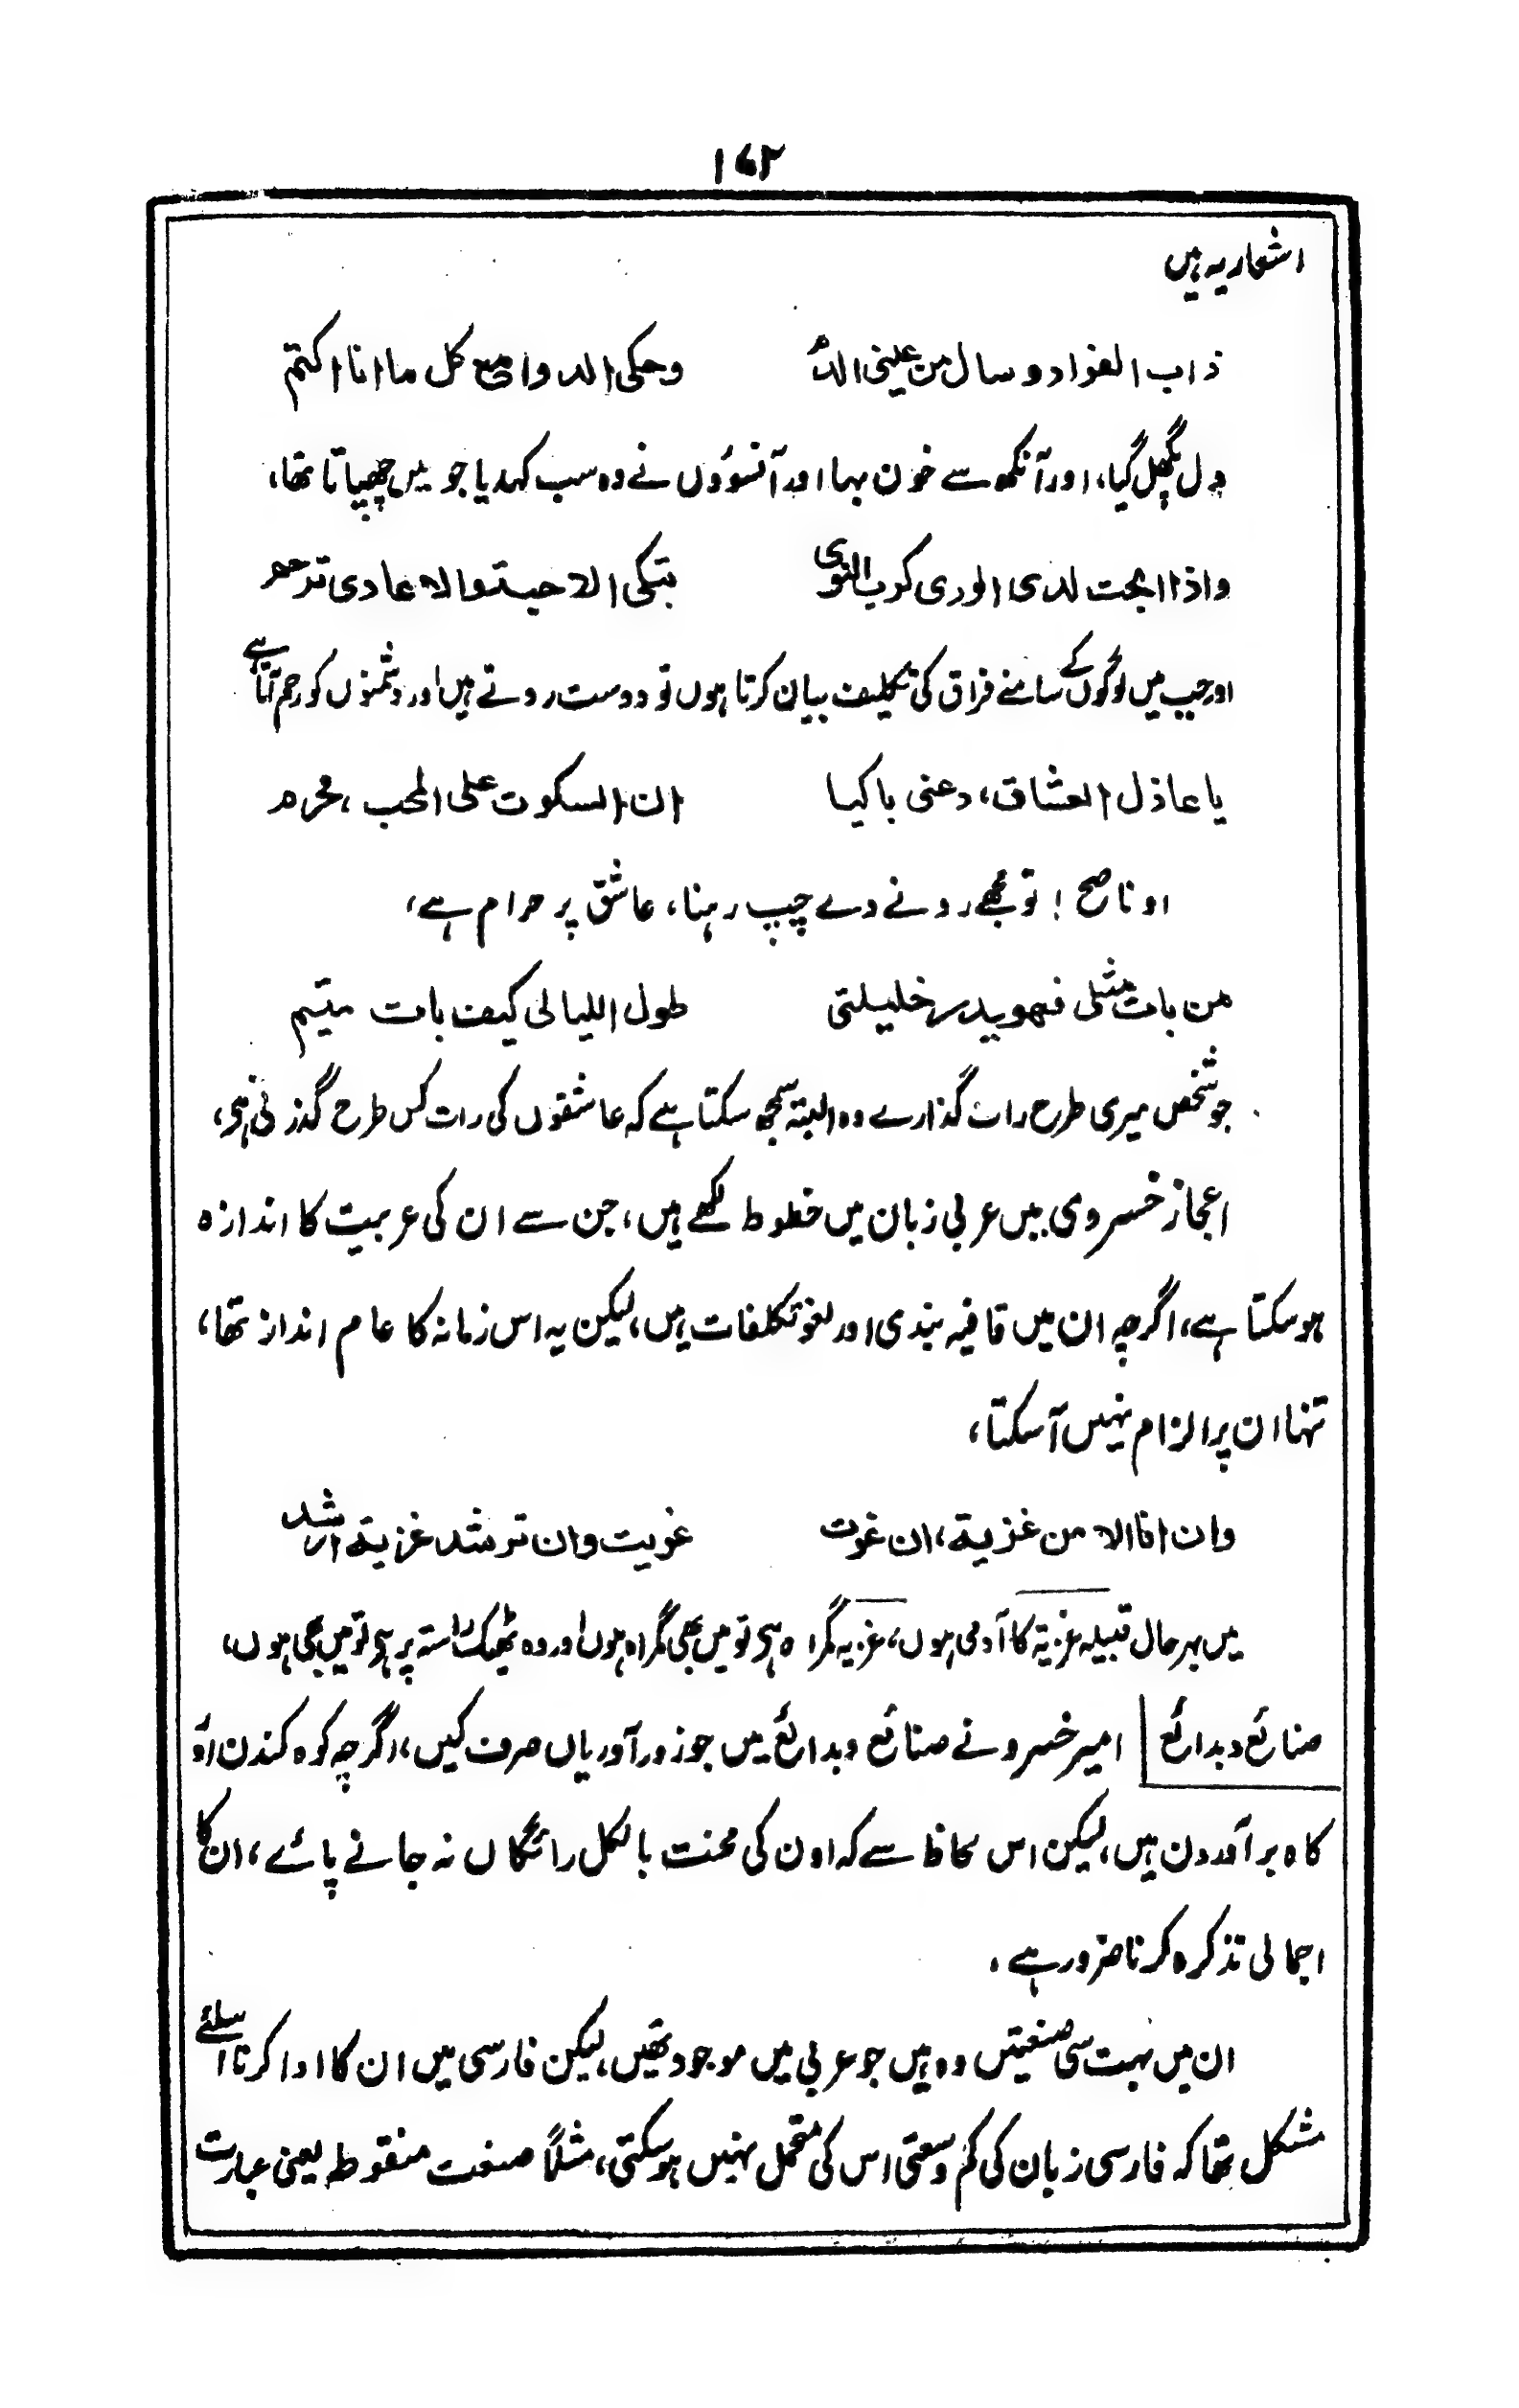 ۱۷۲
اشعار یہ ہیں
ذاب الفواد وسال من عینی الدم وحکی الدوامع کل ما انا اکتم
دل پگھل گیا، اور آنکھ سے خون بہا اور آنسوؤں نے وہ سب کہدیا جو میں چھپاتا تھا،
واذا ابحت لدی الوری کرب النوی بتکی الاحبتہ والاعادی ترحم
اور جب میں لوگوں کے سامنے فراق کی تکلیف بیان کرتا ہوں تو دوست روتے ہیں اور دشمنوں کو رحم آتا ہے
یا عاذل العشاق، دعنی باکیا ان السکوت علی المحب، محرم
او ناصح! تو مجھے رونے دے چپ رہنا، عاشق پر حرام ہے،
من بات مثلی فھو یدر خلیلتی طول اللیالی کیف بات میتم
جو شخص میری طرح رات گذارے وہ البتہ سمجھ سکتا ہے کہ عاشقوں کی رات کس طرح گذرتی ہی،
اعجاز خسروی میں عربی زبان میں خطوط لکھے ہیں، جن سے ان کی عربیت کا اندازہ
ہو سکتا ہے، اگرچہ ان میں قافیہ بندی اور لغو تکلفات ہیں، لیکن یہ اس زمانہ کا عام انداز تھا،
تنہا ان پر الزام نہیں آ سکتا،
وان انا الا من غزیة، ان غوت غویت وان ترشد غزیة ارشد
میں بہر حال قبیلہ غزیة کا آدمی ہوں، غزیہ گمراہ ہی تو میں بھی گمراہ ہوں اور وہ ٹھیک راستہ پر ہی تو میں بھی ہوں،
صنائع وبدائع امیر خسرو نے صنائع وبدائع میں جو زور آوریاں صرف کیں، اگرچہ کوہ کندن اؤ
کاہ برآوردن ہیں، لیکن اس لحاظ سے کہ اون کی محنت بالکل رائگاں نہ جانے پائے، ان کا
اجمالی تذکرہ کرنا ضرور ہے.
ان میں بہت سی صنعتیں وہ ہیں جو عربی میں موجود تھیں، لیکن فارسی میں ان کا ادا کرنا اسلئے
مشکل تھا کہ فارسی زبان کی کم وسعتی اس کی متحمل نہیں ہو سکتی، مثلاً صنعت منقوط یعنی عبارت